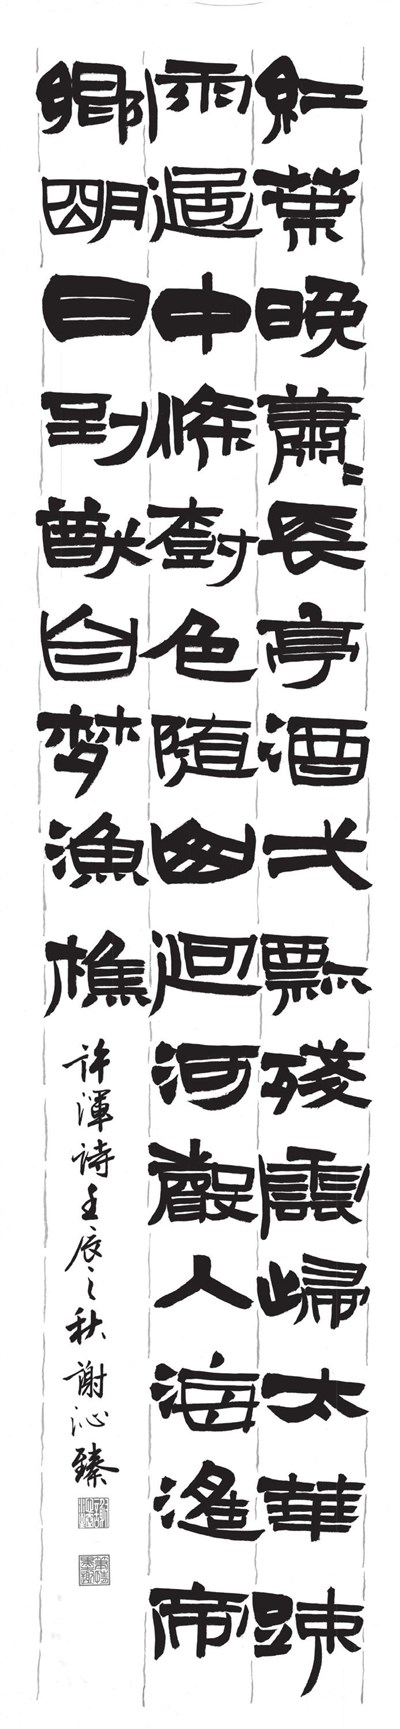 紅葉晚蕭〻長亭酒弌瓢殘雲歸太華踈
雨過中條樹色隨山迥河聲入海遙帝
鄉明日到猷自梦漁樵
許渾詩壬辰之秋謝沁臻